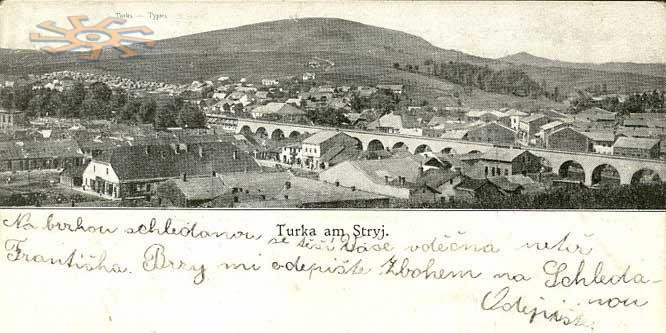 Turka am Stryj.
Na brzkou schledanou se těší Vase vděčna neteř
Františka. Brzy mi odepište Zbohem na Schleda-
nou
Odepište.